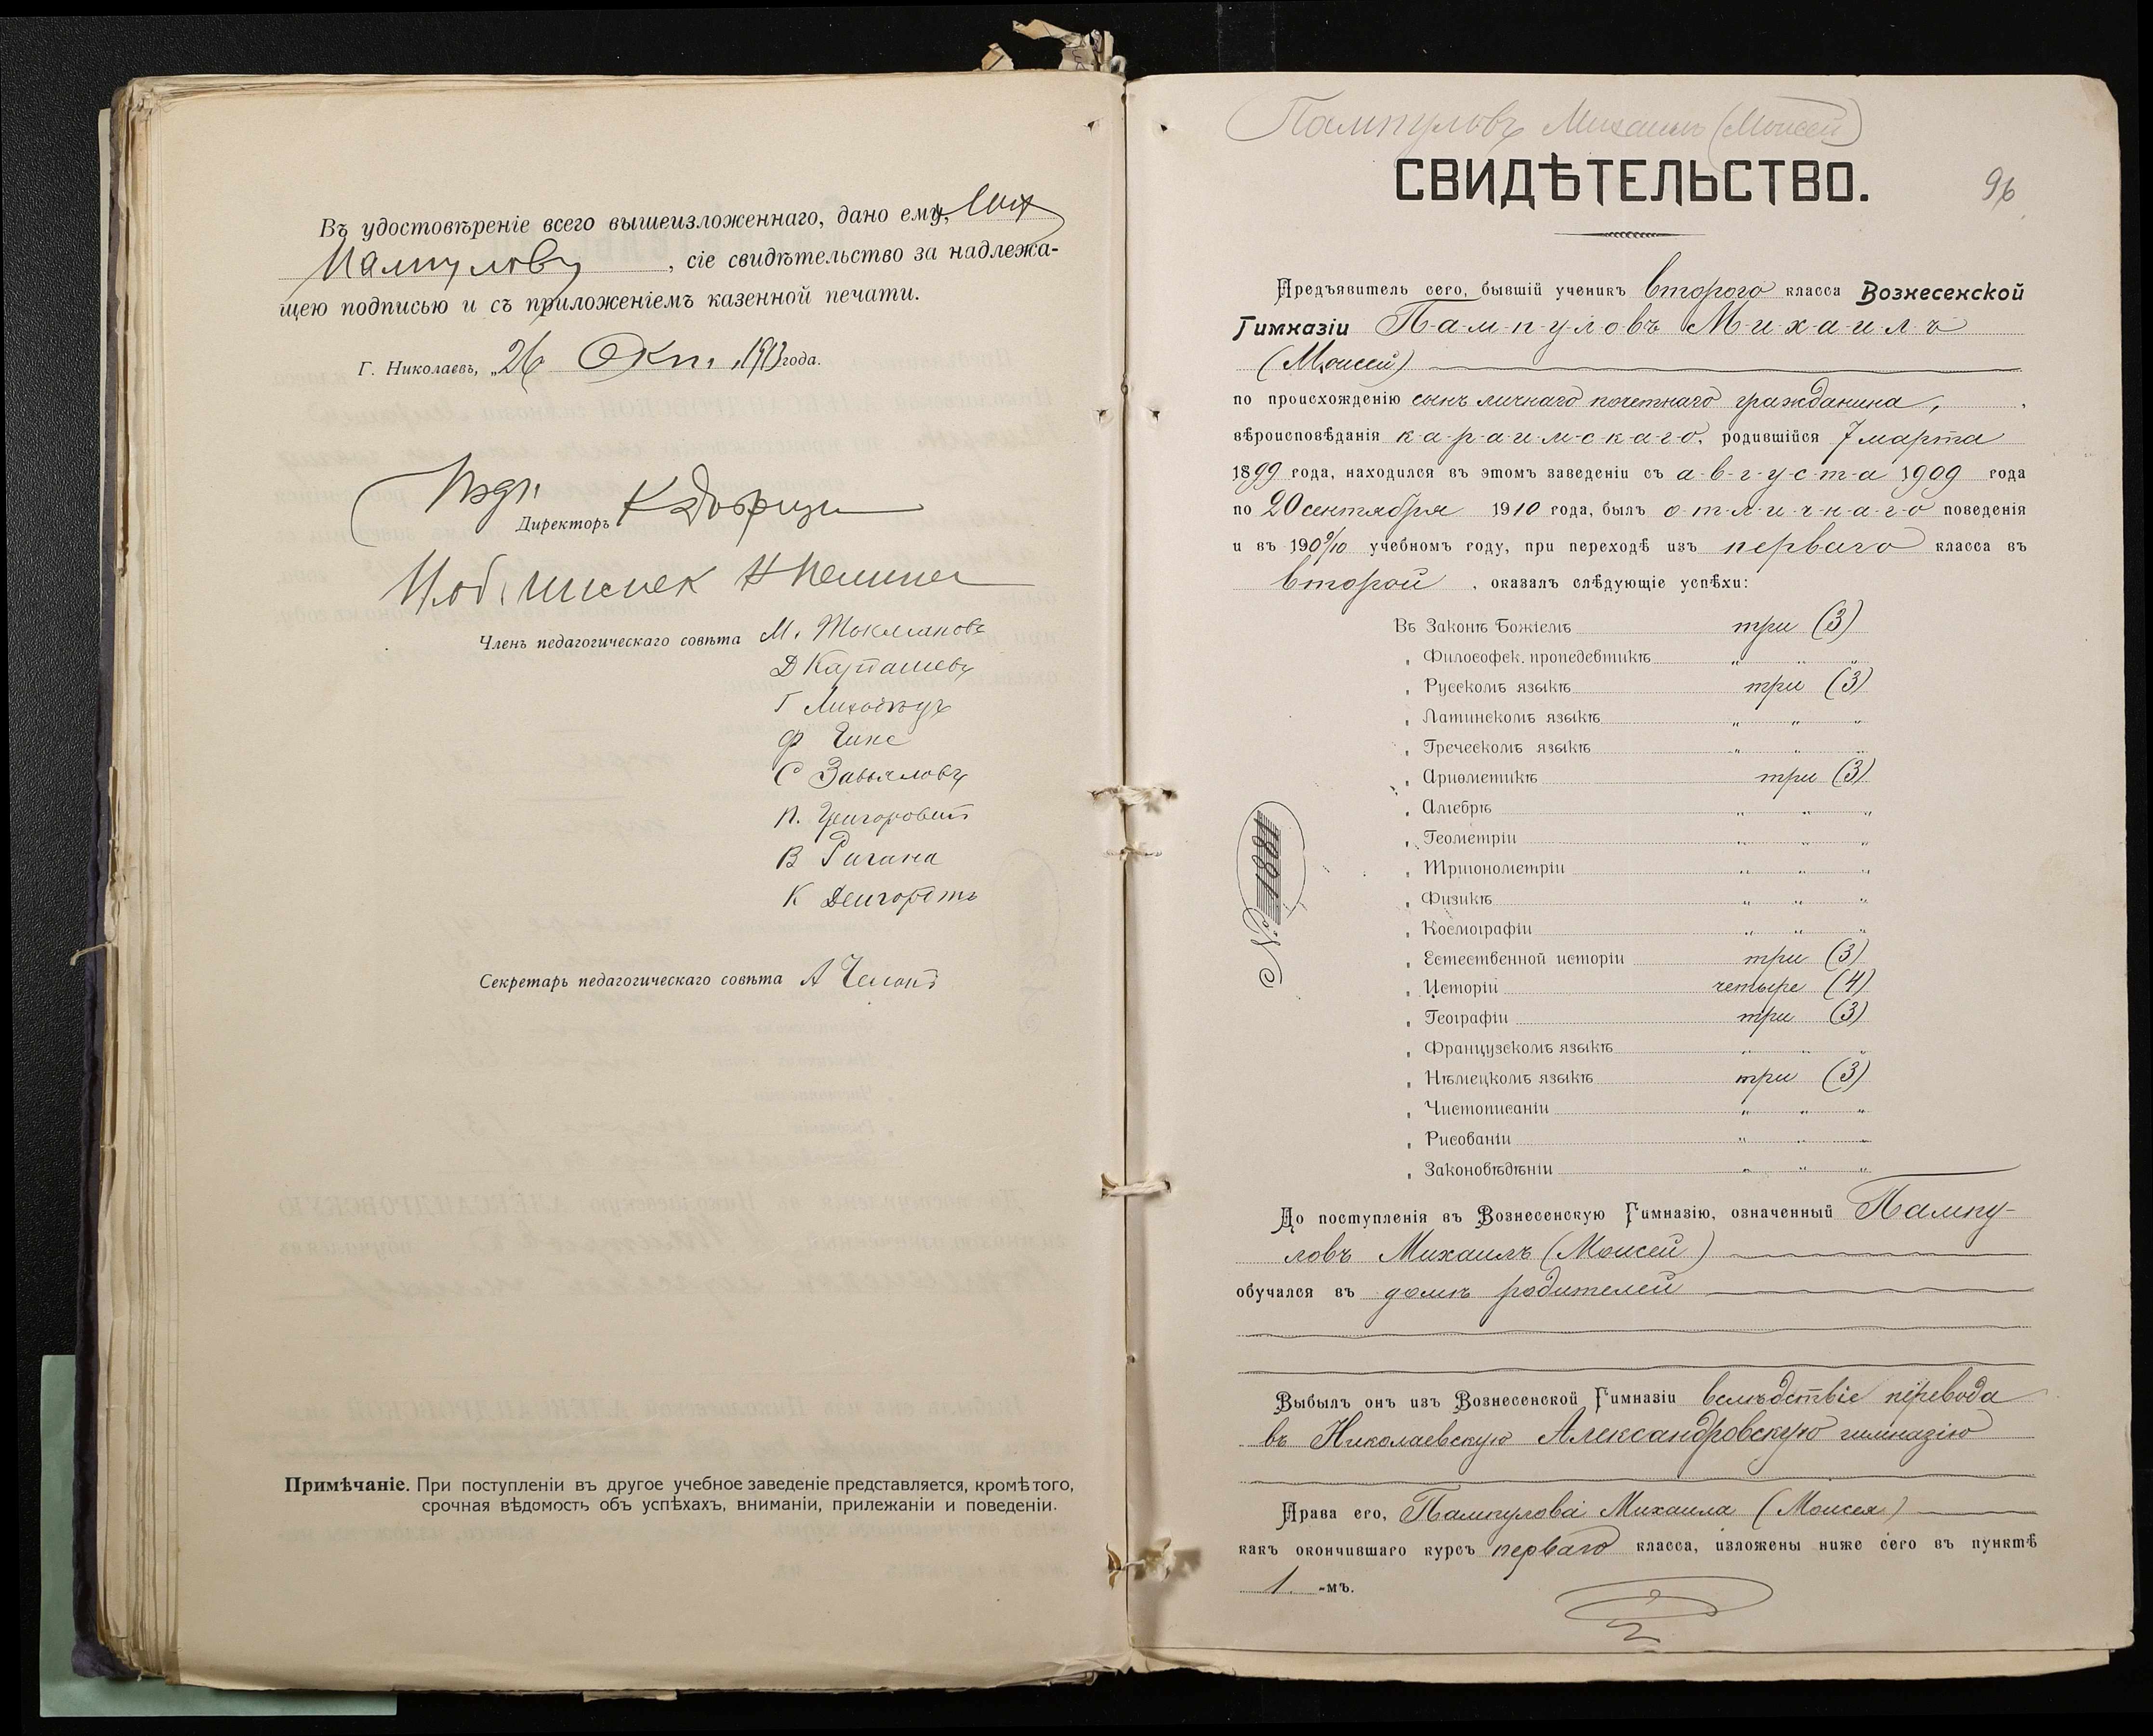 Въ удостовѣреніе всего вышеизложеннаго, дано ему,
Пампулову, сіе свидѣтельство за надлежа-
щею подписью и съ приложеніемъ казенной печати.
Г. Николаевъ, „26 Окт. 1913 года.
Директоръ
Членъ педагогическаго совѣта М.
Д Карташевъ
Г
Ф Гинс
С Завьяловъ
П. Григорович
В
К
Секретарь педагогическаго совѣта А
Примѣчаніе. При поступленіи въ другое учебное заведеніе представляется, кромѣ того,
срочная вѣдомость объ успѣхахъ, вниманіи, прилежаніи и поведеніи.
Пампуловъ Михаилъ (Моисей)
СВИДѢТЕЛЬСТВО.
96
Предъявитель сего, бывшій ученикъ второго класса Вознесенской
Гимназіи П-а-м-п-у-л-о-в-ъ М-и-х-а-и-л-ъ
(Моисей)
по происхожденію сынъ личнаго почетнаго гражданина,
вѣроисповѣданія к-а-р-а-и-м-с-к-а-г-о, родившійся 7 марта
1899 года, находился въ этомъ заведеніи съ а-в-г-у-с-т-а 1909 года
по 20 сентября 1910 года, былъ о-т-л-и-ч-н-а-г-о поведенія
и въ 1909/10 учебномъ году, при переходѣ изъ перваго класса въ
второй, оказалъ слѣдующіе успѣхи:
Въ Законѣ Божіемъ три (3)
„ Философск. пропедевтикѣ „ „ „
„ Русскомъ языкѣ три (3)
„ Латинскомъ языкѣ „ „ „
„ Греческомъ языкѣ „ „ „
„ Ариѳметикѣ три (3)
„ Алгебрѣ „ „ „
„ Геометріи „ „ „
„ Тригонометріи „ „ „
„ Физикѣ „ „ „
„ Космографіи „ „ „
„ Естественной исторіи три (3)
„ Исторіи четыре (4)
„ Географіи три (3)
„ Французскомъ языкѣ „ „ „
„ Нѣмецкомъ языкѣ три (3)
„ Чистописаніи „ „ „
„ Рисованіи „ „ „
„ Законовѣдѣніи „ „ „
№ 1881
До поступленія въ Вознесенскую Гимназію, означенный Пампу-
ловъ Михаилъ (Моисей)
обучался въ домѣ родителей
Выбылъ онъ изъ Вознесенской Гимназіи вслѣдствіе перевода
въ Николаевскую Александровскую гимназію
Права его, Пампулова Михаила (Моисея)
какъ окончившаго курсъ перваго класса, изложены ниже сего въ пунктѣ
1. -мъ.